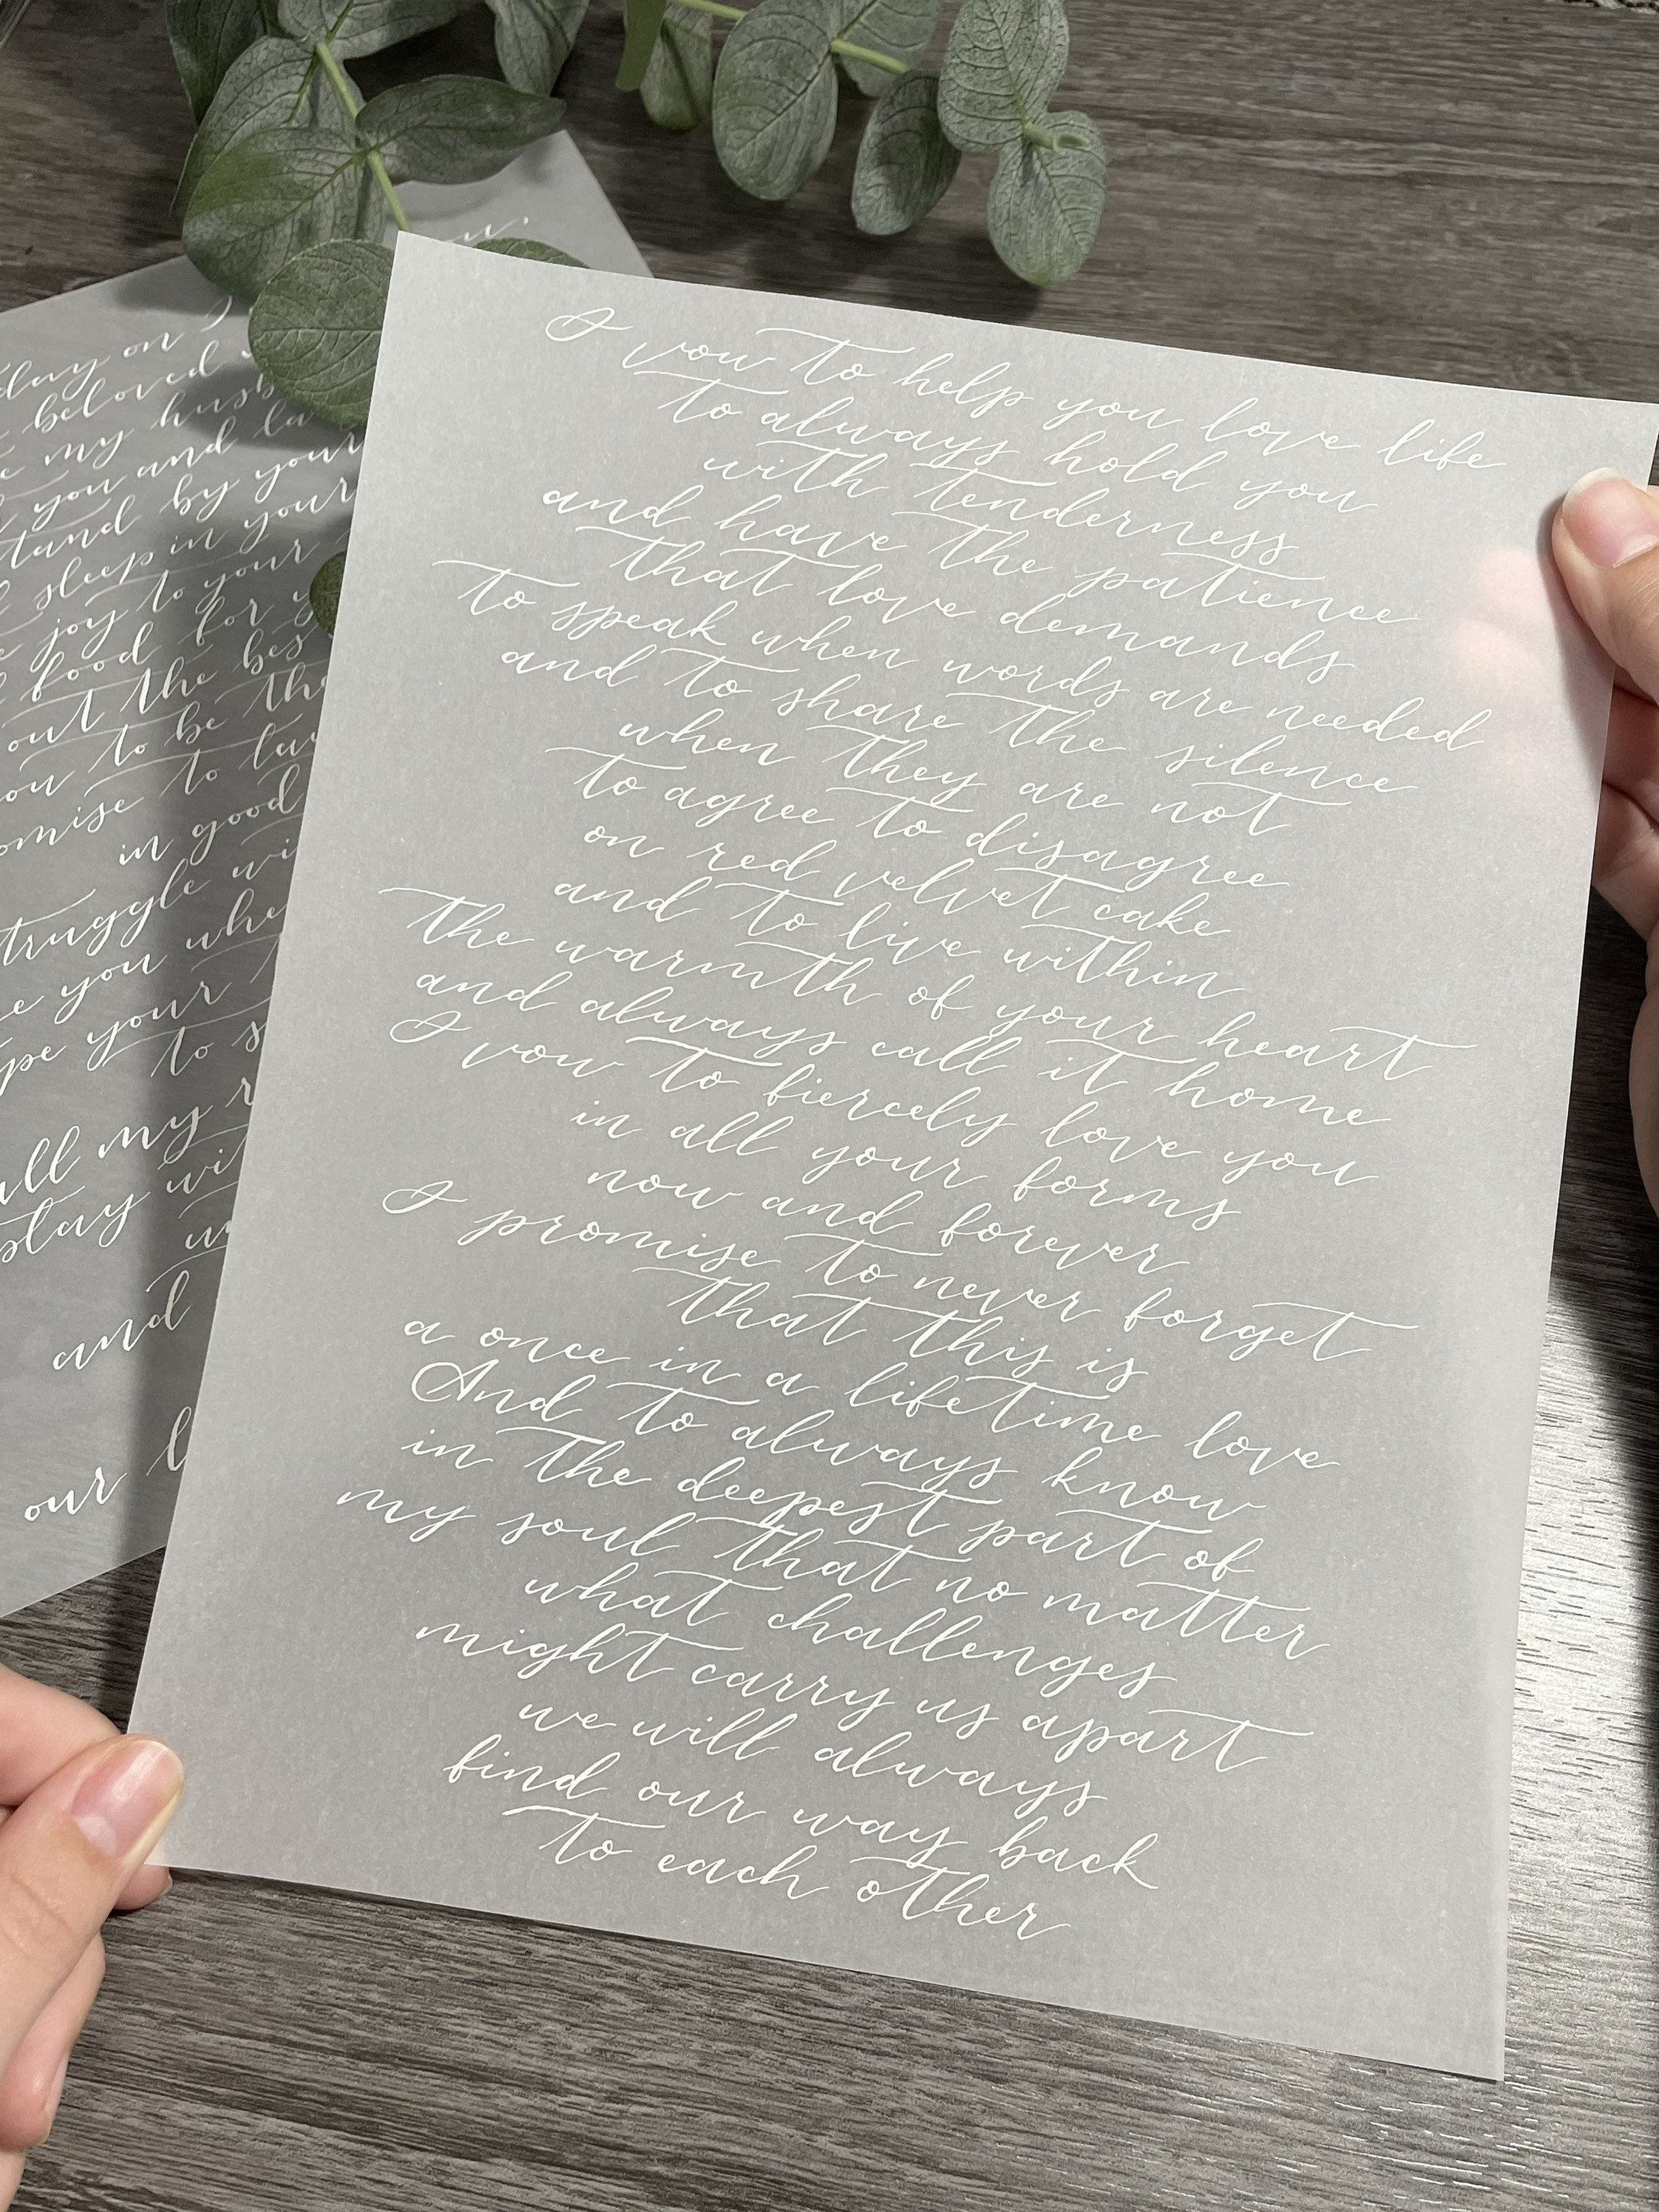 I vow to help you love life
to always hold you
with tenderness
and have the patience
that love demands
to speak when words are needed
and to share the silence
when they are not
to agree to disagree
on red velvet cake
and to live within
the warmth of your heart
and always call it home
I vow to fiercely love you
in all your forms
now and forever
I promise to never forget
that this is
a once in a lifetime love
And to always know
in the deepest part of
my soul that no matter
what challenges
might carry us apart
we will always
find our way back
to each other
day on
beloved
my husb
you and la
by your
sleep in your
joy to your
food for
out the bes
to be the
to lau
in good
wi
you whe
your
to s
my r
wi
and
our l